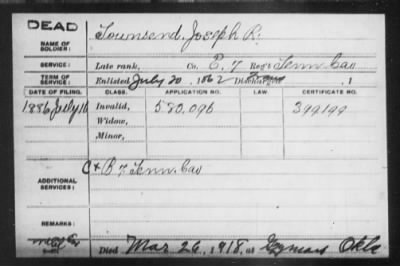 DEAD
NAME OF SOLDIER: Townsend, Joseph R.
SERVICE: Late rank, Co. E, 7 Reg't Tenn. Cav
TERM OF SERVICE: Enlisted July 20, 1862 Discharged , 1
DATE OF FILING. CLASS. APPLICATION NO. LAW. CERTIFICATE NO.
1886 July Invalid, 580,096 399199
Widow,
Minor,
ADDITIONAL SERVICES: C + B 7 Tenn. Cav
REMARKS:
Died Mar 26, 1918, at Guymon Okla